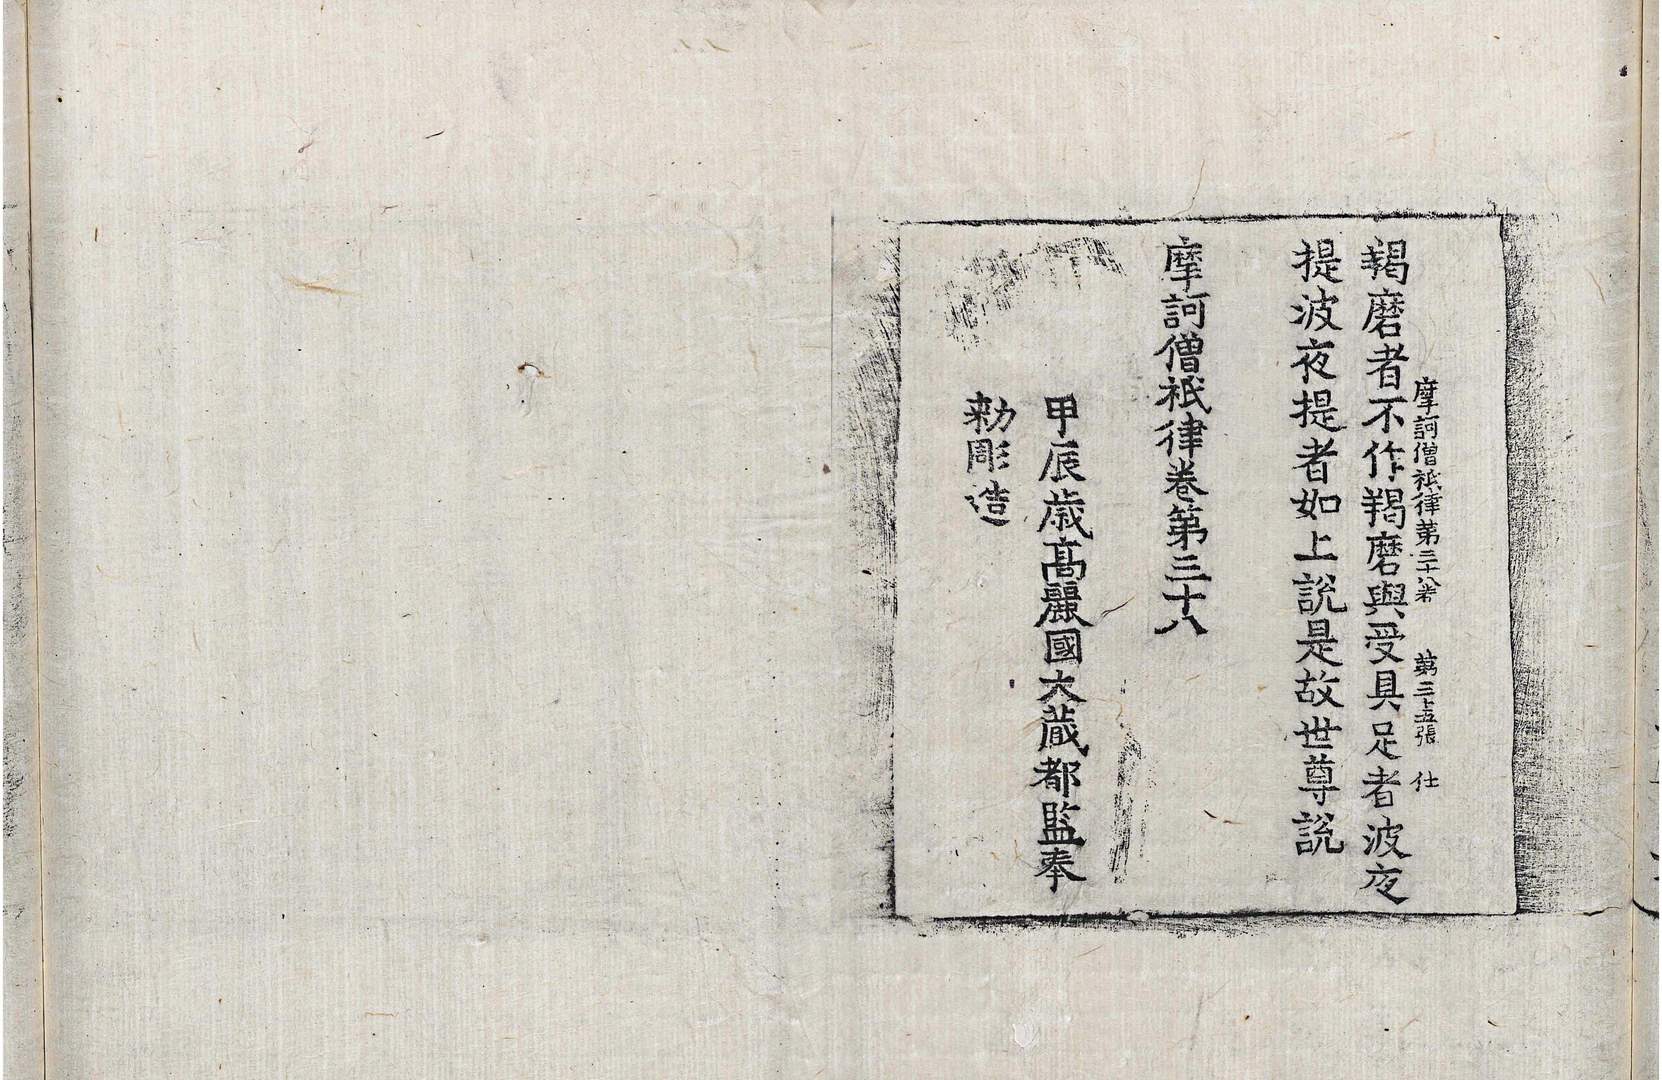 摩訶僧祇律第三十八卷 第三十五張 仕
羯磨者不作羯磨與受具足者波夜
提波夜提者如上說是故世尊說
摩訶僧祇律卷第三十八
甲辰歲高麗國大藏都監奉
勅彫造